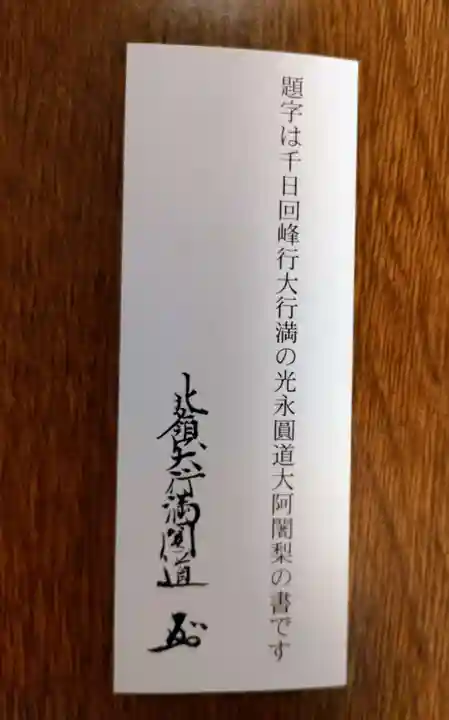 題字は千日回峰行大行満の光永圓道大阿闍梨の書です
北嶺大行満圓道